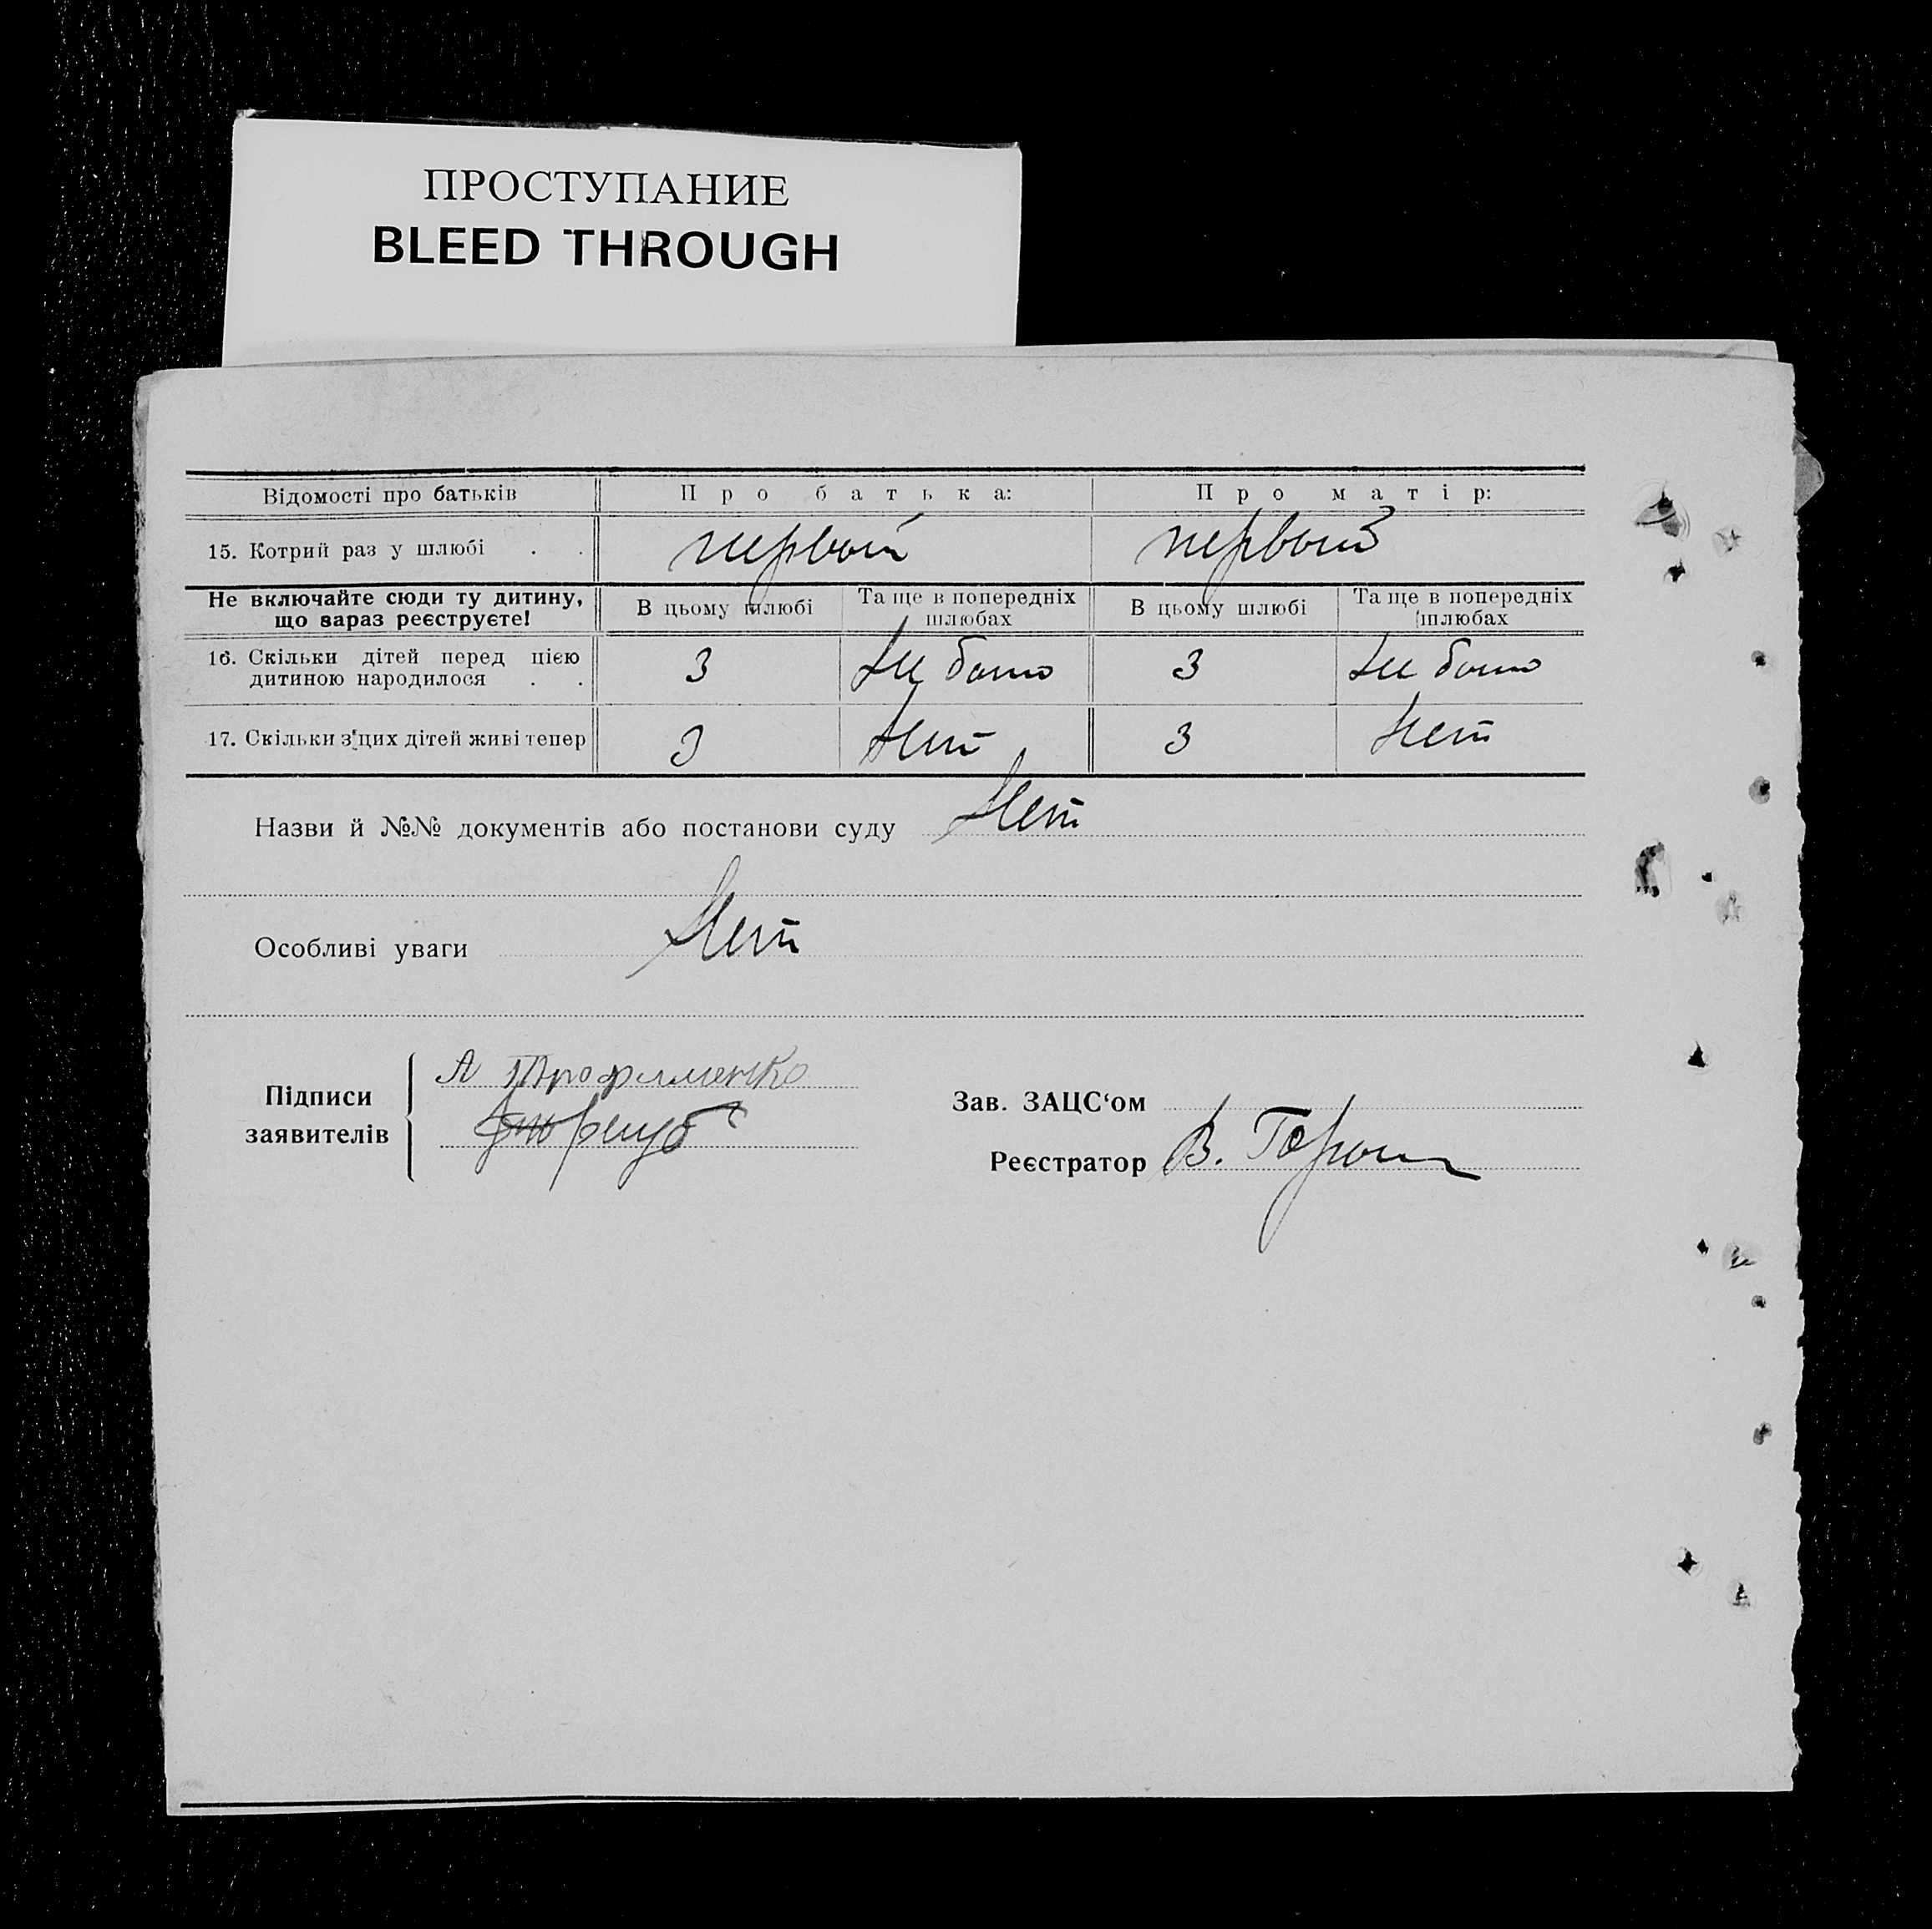 ПРОСТУПАНИЕ
BLEED THROUGH
Відомості про батьків Про батька: Про матір:
15. Котрий раз у шлюбі . . первый первый
Не включайте сюди ту дитину, що зараз реєструєте! В цьому шлюбі Та ще в попередніх шлюбах В цьому шлюбі Та ще в попередніх шлюбах
16. Скільки дітей перед цією дитиною народилося . . 3 Не было 3 Не было
17. Скільки з цих дітей живі тепер 3 Нет 3 Нет
Назви й №№ документів або постанови суду Нет
Особливі уваги Нет
Підписи заявителів
А Трофименко
Зав. ЗАЦС‘ом
Реєстратор В.